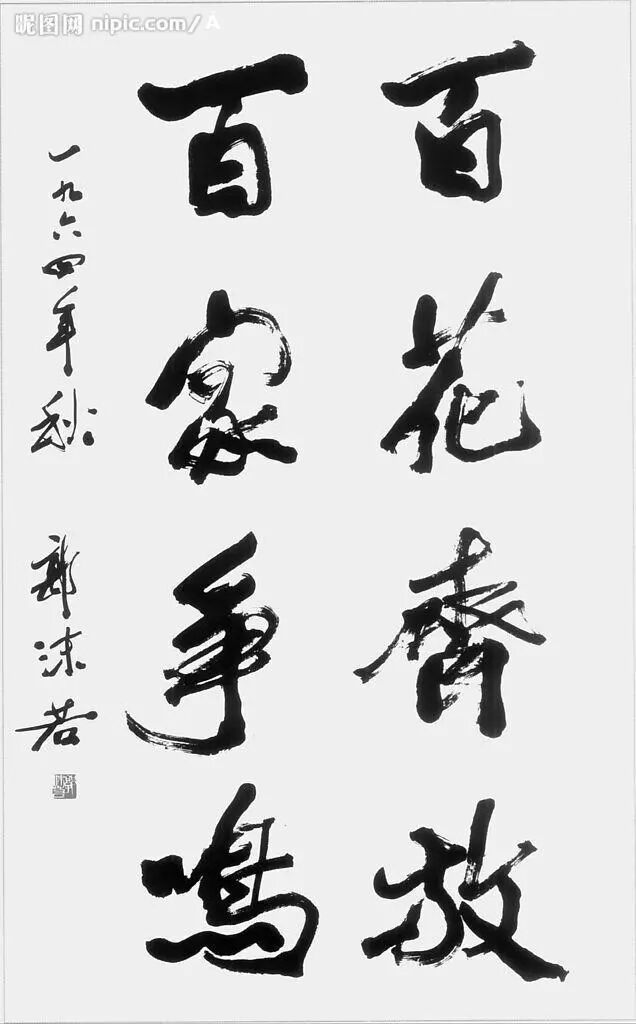 昵图网 nipic.com/A
百花齊放
百家争鳴
一九六四年秋
郭沫若